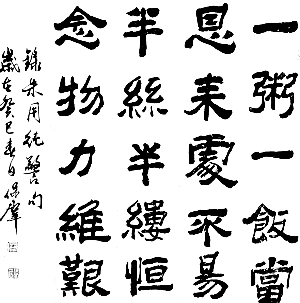 一粥一飯當
思来處不易
半絲半縷恒
念物力維艱
錄朱用純警句
歲在癸巳春月保肇